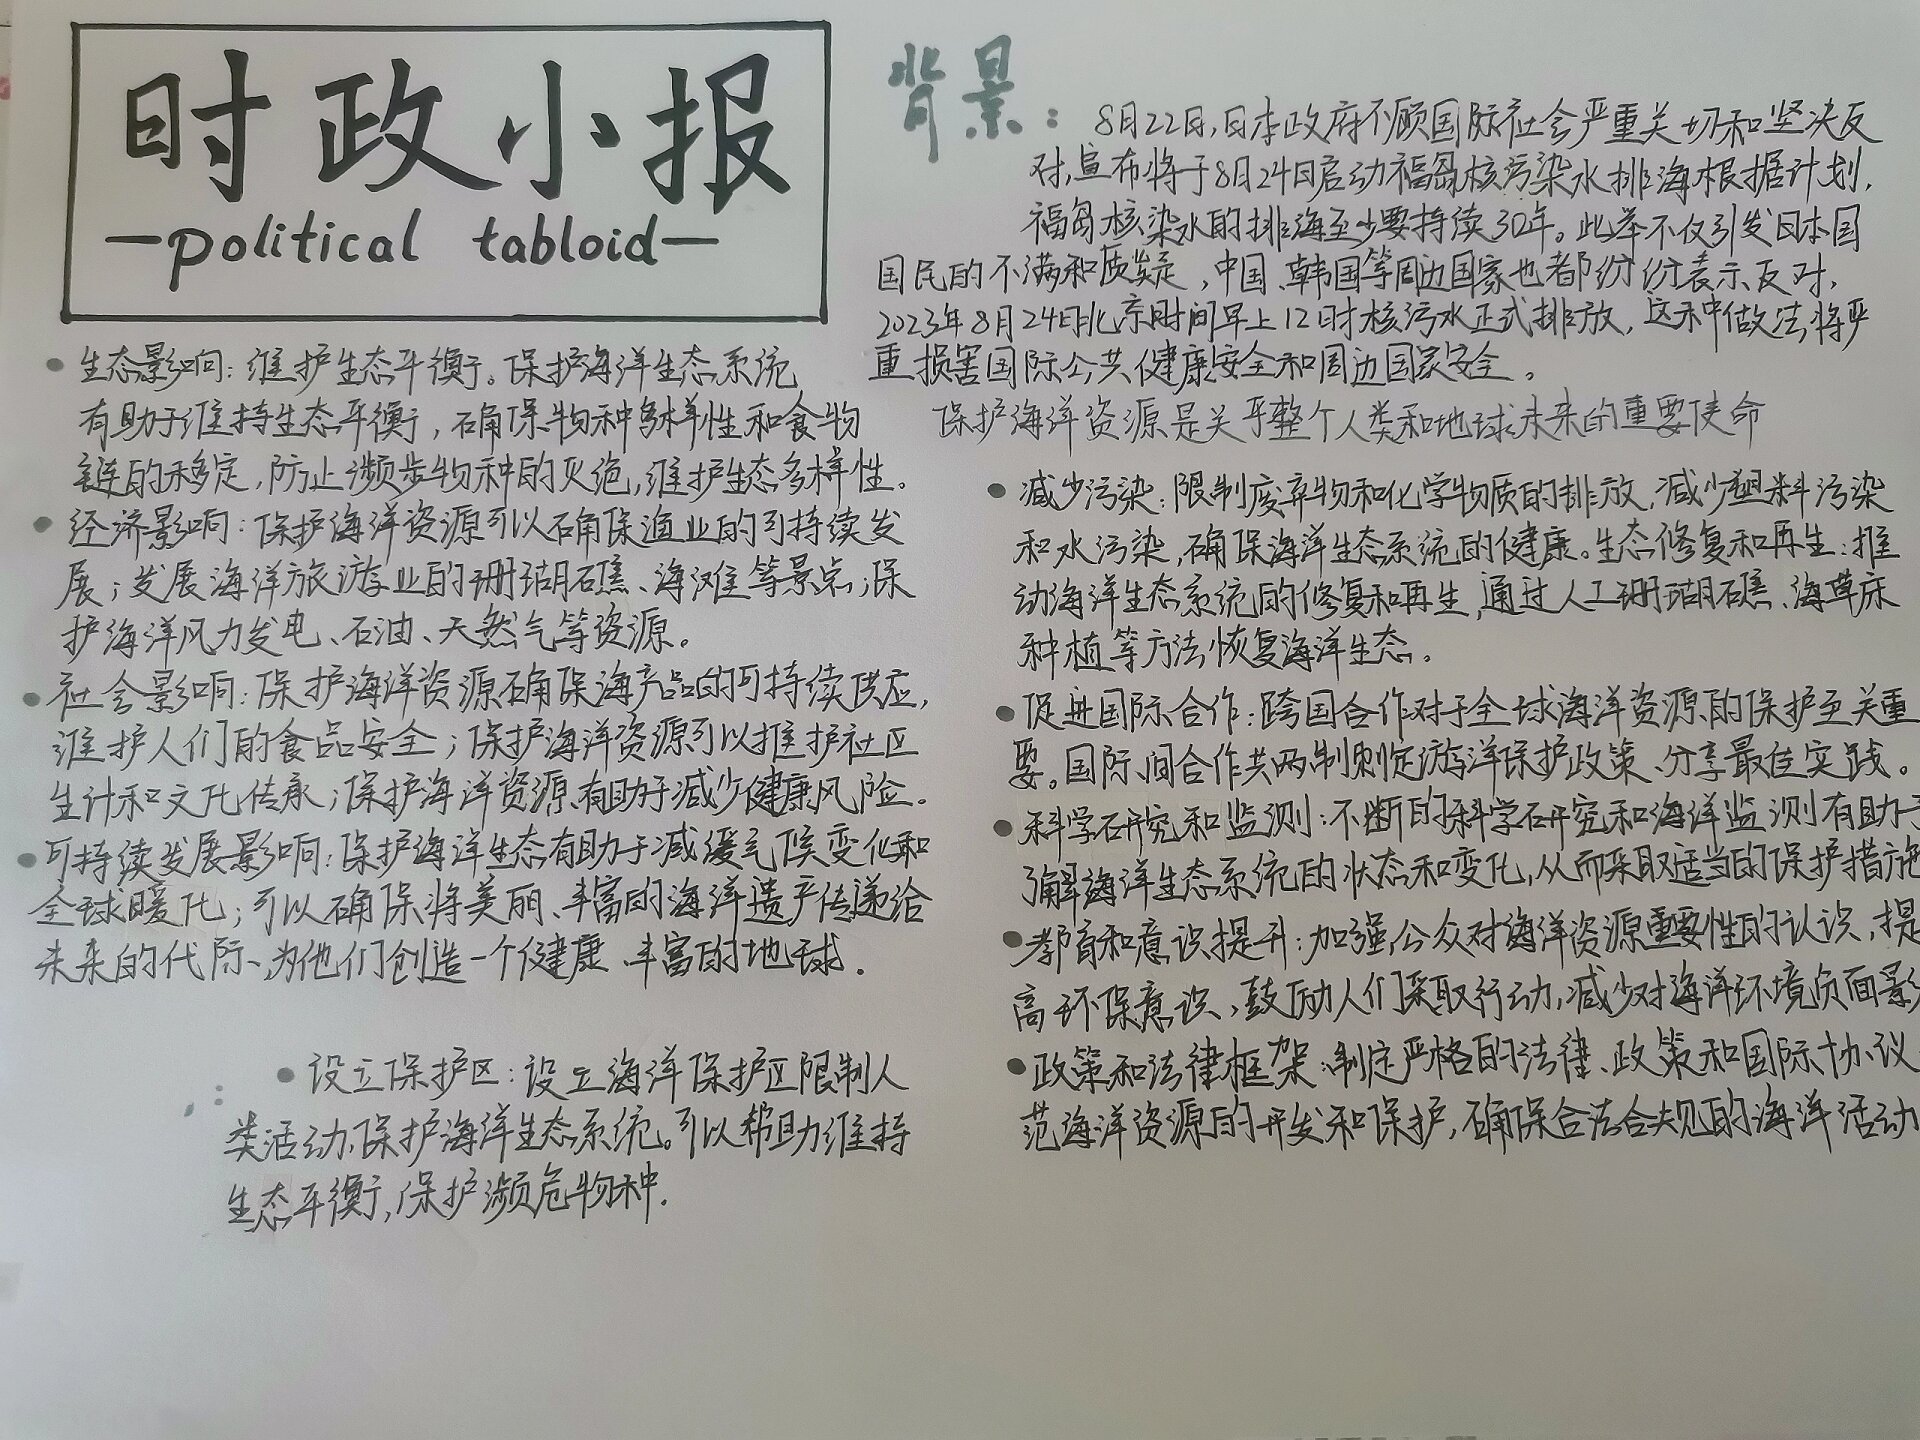 时政小报
political tabloid
生态影响：维护生态平衡。保护海洋生态系统
有助于维持生态平衡，确保物种多样性和食物
链的移定，防止濒步物种的灭绝，维护生态多样性。
经济影响：保护海洋资源可以确保渔业的可持续发
展；发展海洋旅游业的珊瑚礁、海滩等景点；保
护海洋风力发电、石油、天然气等资源。
社会影响：保护海洋资源确保海产品的可持续供应，
维护人们的食品安全；保护海洋资源可以维护社区
生计和文化传承；保护海洋资源有助于减少健康风险。
可持续发展影响：保护海洋生态有助于减缓气候变化和
全球暖化；可以确保将美丽、丰富的海洋遗产传递给
未来的代际、为他们创造一个健康、丰富的地球。
设立保护区：设立海洋保护区限制人
类活动、保护海洋生态系统。可以帮助维持
生态平衡，保护濒危物种.
背景：
8月22日，日本政府不顾国际社会严重关切和坚决反
对，宣布将于8月24日启动福岛核污染水排海根据计划，
福岛核染水的排海至少要持续30年。此举不仅引发日本国
国民的不满和质疑，中国、韩国等周边国家也都纷纷表示反对，
2023年8月24日北京时间早上12时核污水正式排放，这种做法将严
重损害国际公共健康安全和周边国家安全。
保护海洋资源是关乎整个人类和地球未来的重要使命
减少污染：限制废弃物和化学物质的排放，减少塑料污染
和水污染，确保海洋生态系统的健康。生态修复和再生：推
动海洋生态系统的修复和再生，通过人工珊瑚礁、海草床
种植等方法恢复海洋生态。
促进国际合作：跨国合作对于全球海洋资源的保护至关重
要。国际间合作共两制定海洋保护政策、分享最佳实践。
科学研究和监测：不断的科学研究和海洋监测有助于
了解海洋生态系统的状态和变化，从而采取适当的保护措施
教育和意识提升：加强公众对海洋资源重要性的认识，提
高环保意识、鼓励人们采取行动，减少对海洋环境负面影
政策和法律框架：制定严格的法律、政策和国际协议
范海洋资源的开发和保护，确保合法合规的海洋活动